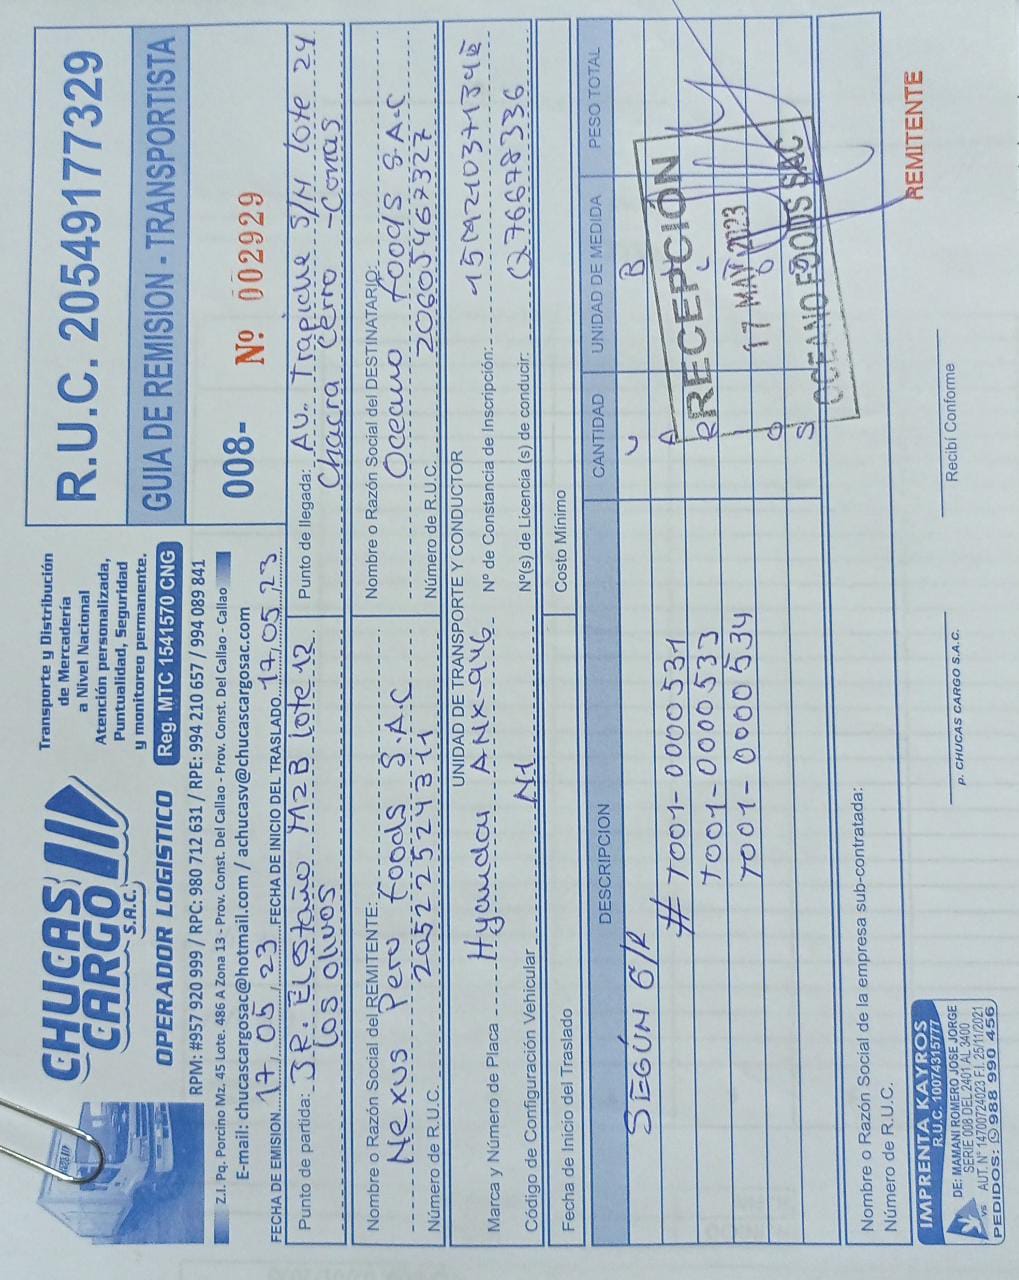 CHUCAS
CARGO
S.A.C.
OPERADOR LOGISTICO
Transporte y Distribución
de Mercadería
a Nivel Nacional
Atención personalizada,
Puntualidad, Seguridad
y monitoreo permanente.
Reg. MTC 1541570 CNG
RPM: #957 920 999 / RPC: 980 712 631 / RPE: 994 210 657 / 994 089 841
Z.I. Pq. Porcino Mz. 45 Lote. 486 A Zona 13 - Prov. Const. Del Callao - Prov. Const. Del Callao - Callao
E-mail: chucascargosac@hotmail.com / achucasv@chucascargosac.com
R.U.C. 20549177329
GUIA DE REMISION - TRANSPORTISTA
008- Nº 002929
FECHA DE EMISION 17 / 05 / 23 FECHA DE INICIO DEL TRASLADO 17 / 05 / 23
Punto de partida: JR. El estaño MZB lote 12
los olivos
Punto de llegada: AU. Trapiche S/N lote 24
Chacra Cerro - Comas
Nombre o Razón Social del REMITENTE:
Nexus Peru Foods S.A.C
Número de R.U.C. 20522524311
Nombre o Razón Social del DESTINATARIO:
Oceano Foods S.A.C
Número de R.U.C. 20605467327
UNIDAD DE TRANSPORTE Y CONDUCTOR
Marca y Número de Placa Hyunday ANX-946
Nº de Constancia de Inscripción:
Código de Configuración Vehicular N1
Nº(s) de Licencia (s) de conducir: Q76678336
Fecha de Inicio del Traslado
Costo Mínimo
DESCRIPCION CANTIDAD UNIDAD DE MEDIDA PESO TOTAL
SEGÚN G/R
# T001-0000531
T001-0000533
T001-0000534
RECEPCIÓN
17 MAY 2023
OCEANO FOODS SAC
Nombre o Razón Social de la empresa sub-contratada:
Número de R.U.C.
IMPRENTA KAYROS
R.U.C. 10074315777
DE: MAMANI ROMERO JOSE JORGE
SERIE 008 DEL 2401 AL 3400
AUT. N° 14700724023 F.I. 25/11/2021
PEDIDOS: 988 990 456
p. CHUCAS CARGO S.A.C.
Recibí Conforme
REMITENTE